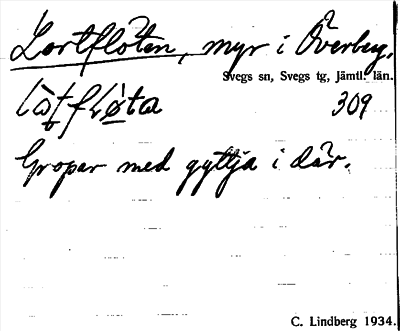 Lortflöten, myr i Överberg.
Svegs sn, Svegs tg, Jämtl. län.
309
Gropar med gyttja i där.
C. Lindberg 1934.